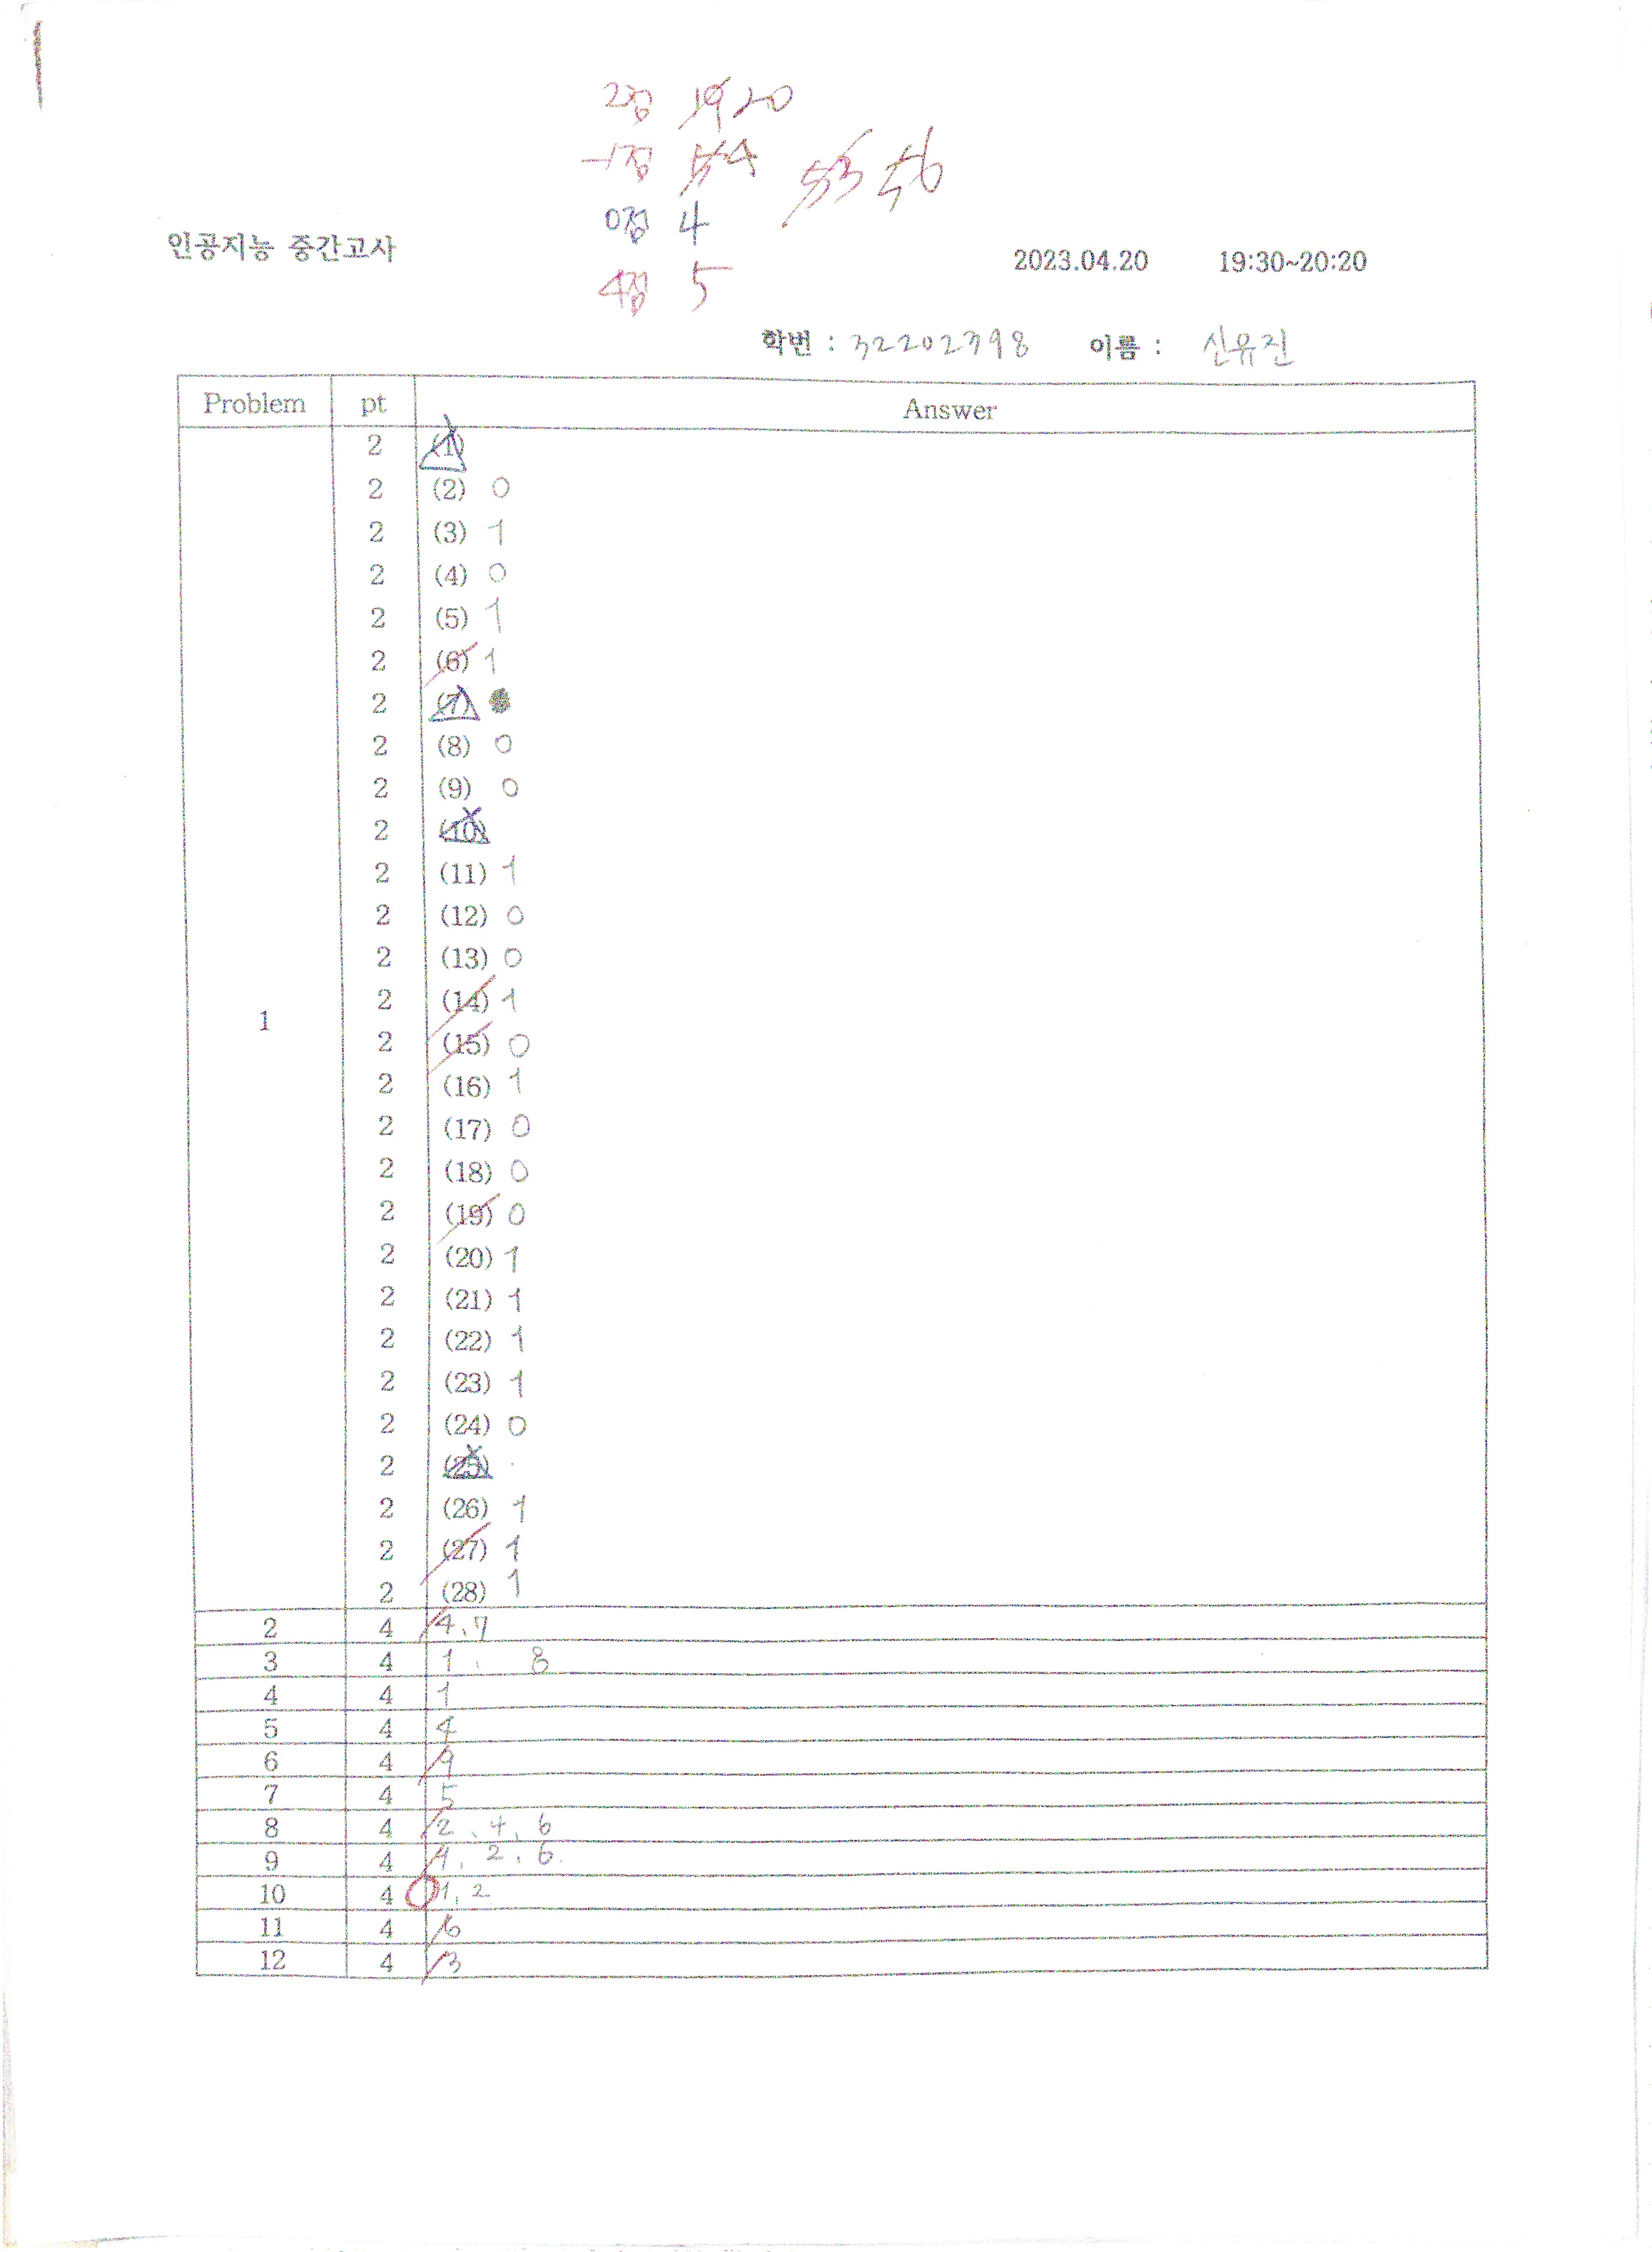 2점 19 20
-1점 5 4 53 56
0점 4
인공지능 중간고사
2023.04.20 19:30~20:20
4점 5
학번 : 32202398 이름 : 신유진
Problem pt Answer
2 (1)
2 (2) 0
2 (3) 1
2 (4) 0
2 (5) 1
2 (6) 1
2 (7)
2 (8) 0
2 (9) 0
2 (10)
2 (11) 1
2 (12) 0
2 (13) 0
2 (14) 1
1
2 (15) 0
2 (16) 1
2 (17) 0
2 (18) 0
2 (19) 0
2 (20) 1
2 (21) 1
2 (22) 1
2 (23) 1
2 (24) 0
2 (25)
2 (26) 1
2 (27) 1
2 (28) 1
2 4 4, 7
3 4 1, 8
4 4 1
5 4 4
6 4
7 4 5
8 4 2, 4, 6
9 4 1, 2, 6.
10 4 1, 2
11 4 6
12 4 3